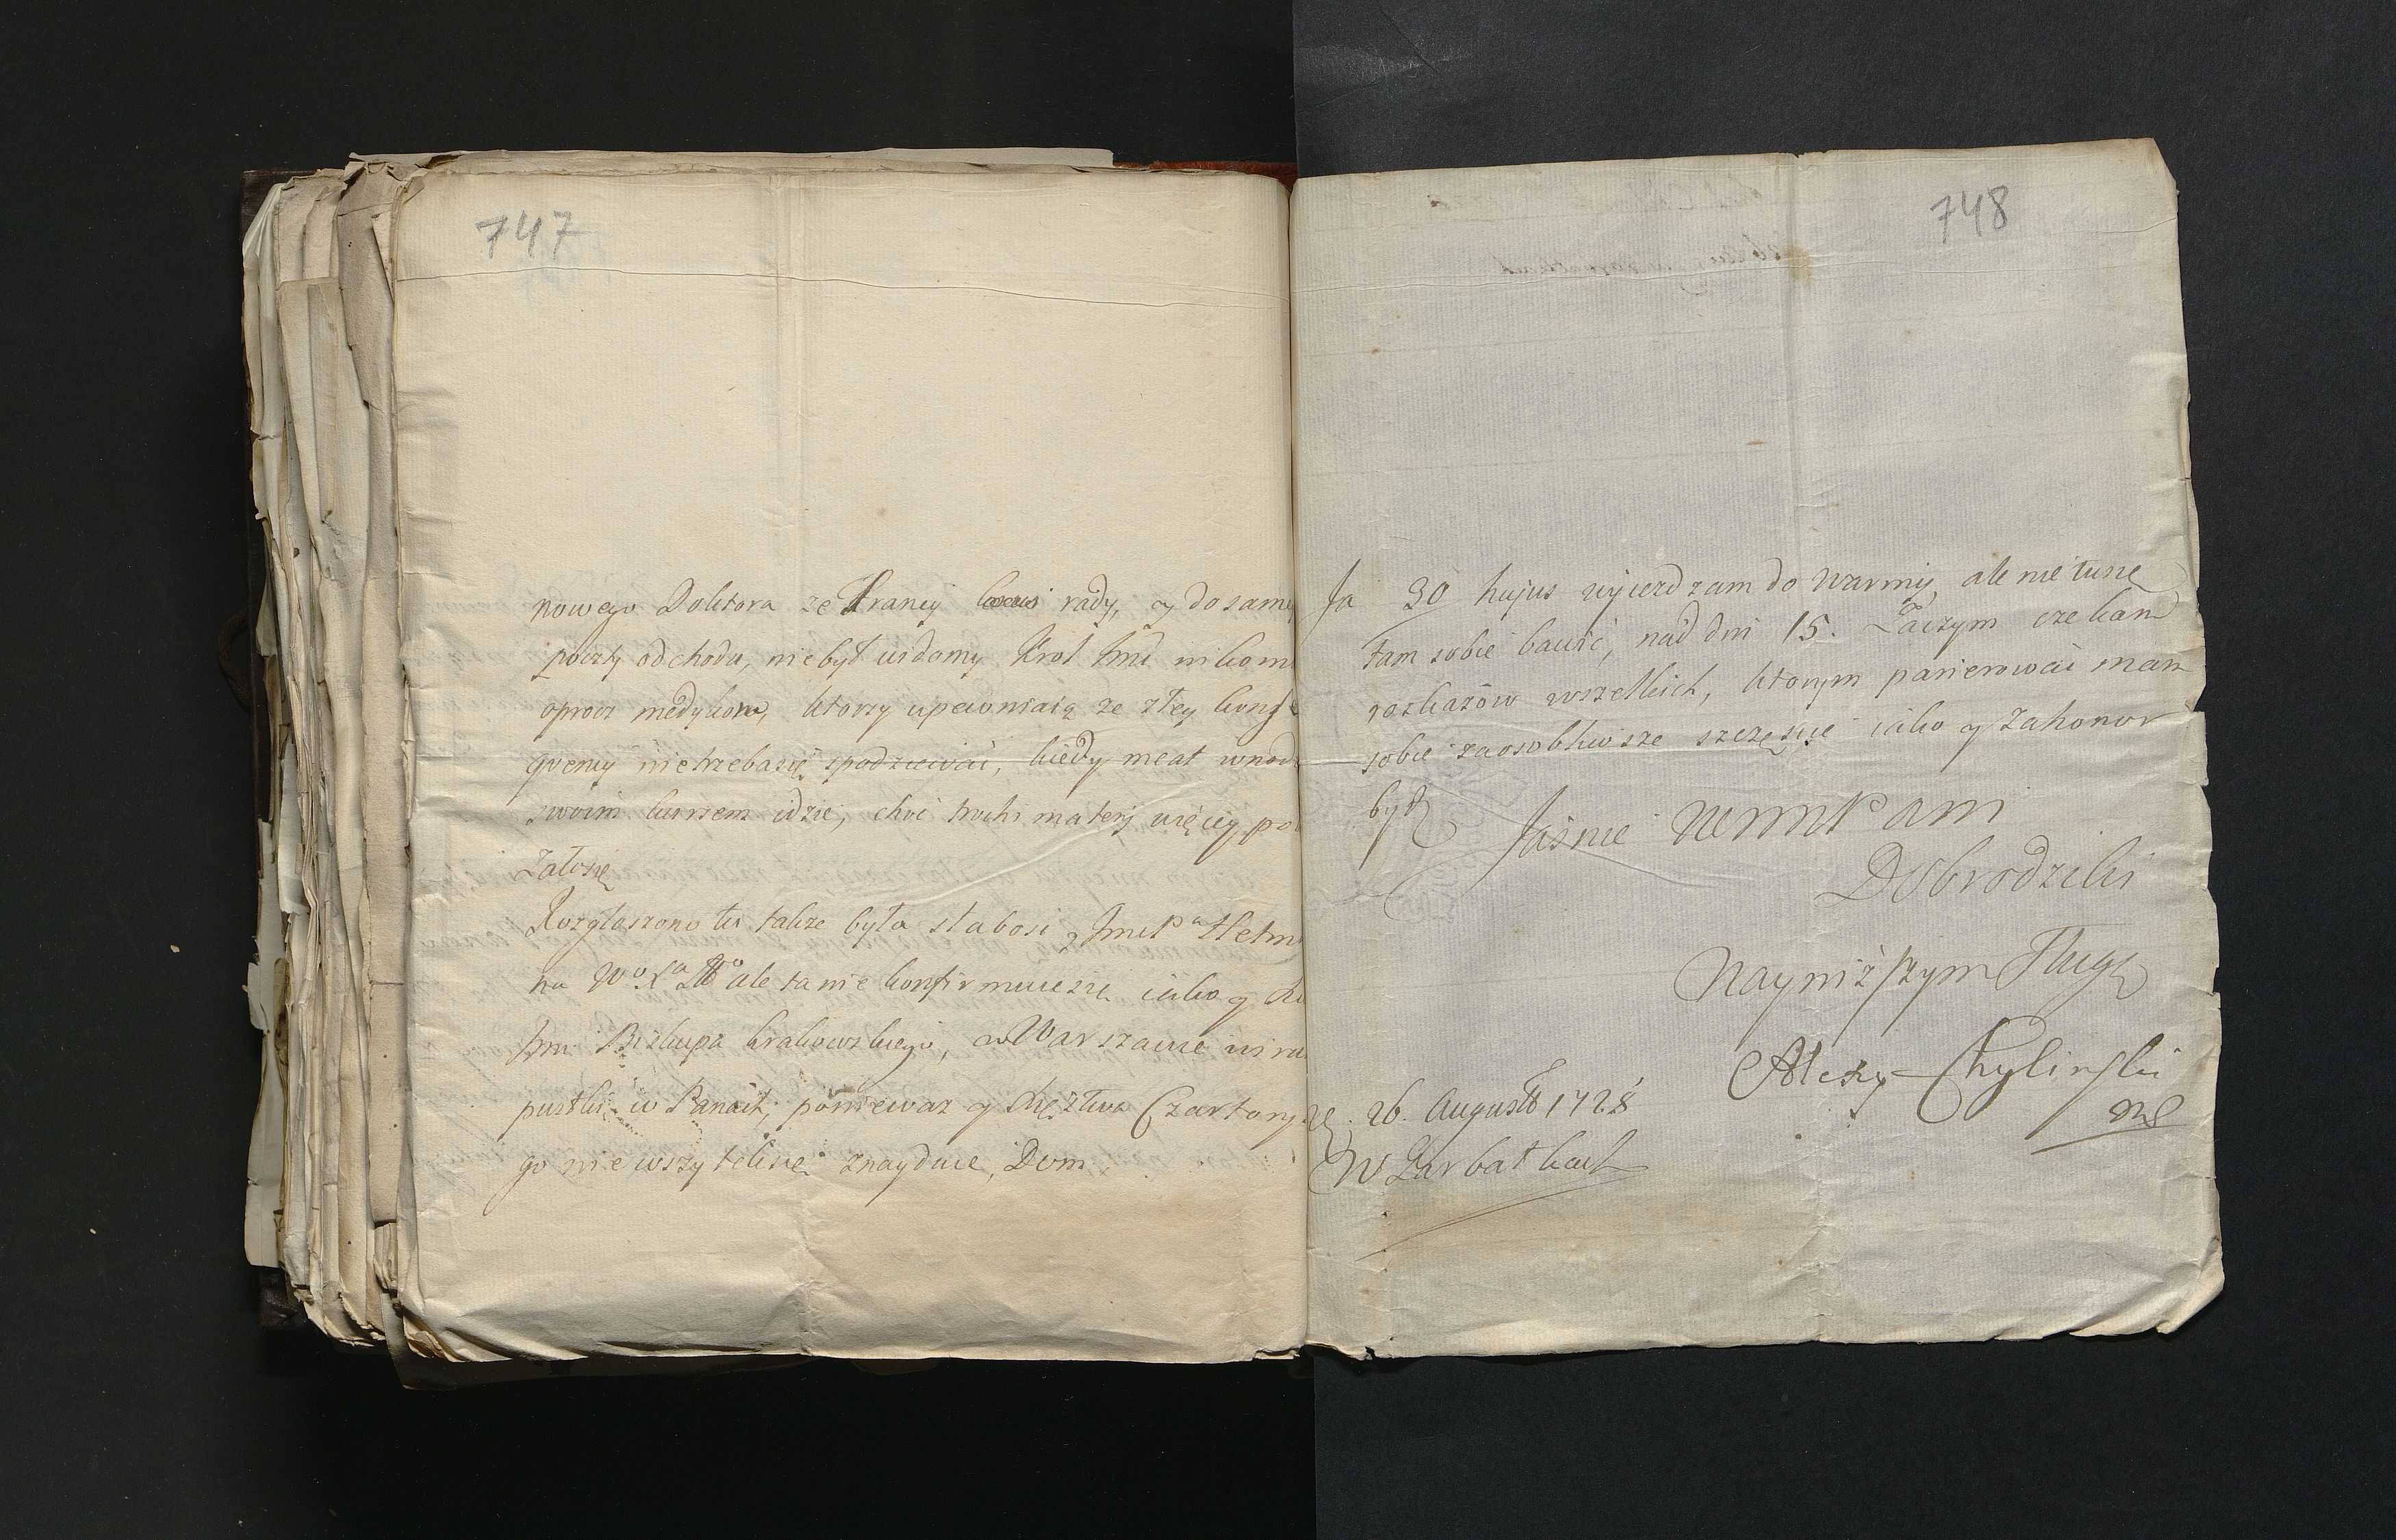 747
nowego Doktora ze Francij rady, y do same
poczty odchodu, niebył widomy Krol Jmć nikom
oprocz medykow, ktorzy upewniaią ze złey konse
qvency nietrzebasię spodziewać, kiedy meat wnod
swoim kursem idzie, choć trochi matery więcey po
załosię
Rozgłoszono tu takze była słabosć JmćPa Hetm
na Wo Xa Lo ale ta nie konfirmuie się iako y
Jmci Biskupa krakowskiego, w Warszawie
pustki w Panach, poniewaz y Xięztwa Czartory
go nie wszytek się znayduie, Dom
748
Ja 30 hujus wyiezdzam do Warmij, ale nie tuszę
tam sobie bawić, nad dni 15. Zaczym czekam
rozkazow wszelkich, ktorym parierować mam
sobie zaosobliwsze szczęście iako y zahonor
być
Jaśnie WMMPani
Dobrodziki
Nayniższym Sługą
Alexy Chylinski
mp
26. Augusti 1728
W Zarbatkach